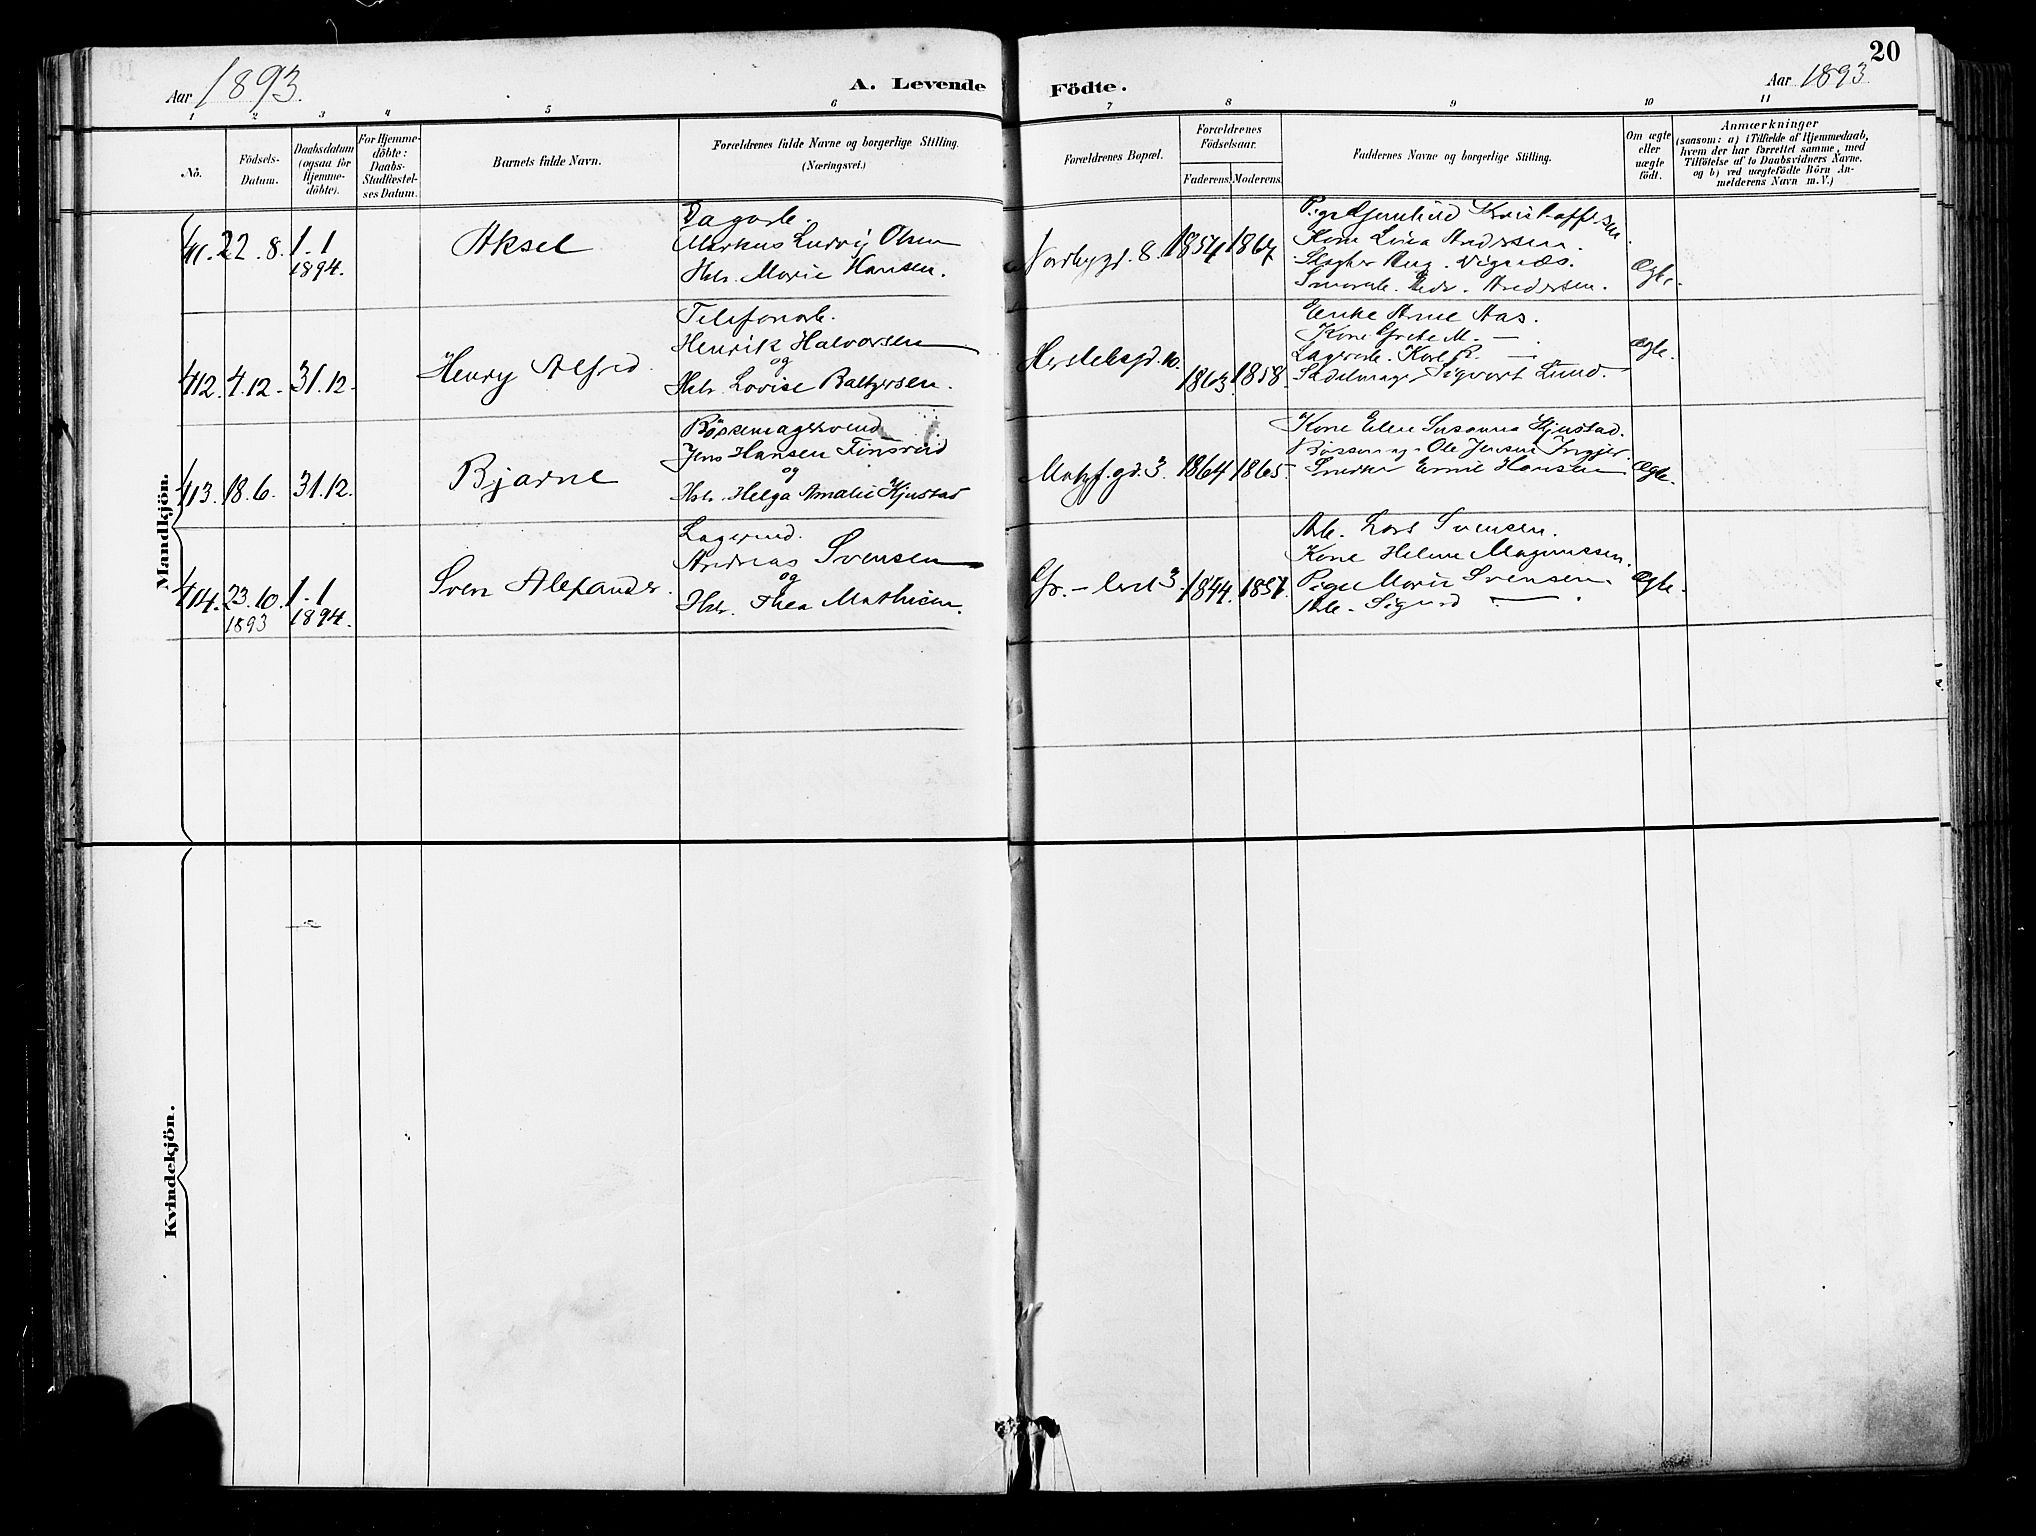 20
Aar 1893.
A. Levende Födte.
Aar 1893
1 2 3 4 5 6 7 8 9 10 11
Nö.
Födsels-Datum.
Daabsdatum (ogsaa for Hjemme-döbte).
For Hjemme-döbte: Daabs-Stadfæstel-ses Datum.
Barnets fulde Navn.
Forældrenes fulde Navne og borgerlige Stilling. (Næringsvei.)
Forældrenes Bopæl.
Forældrenes Födselsaar.
Faderens. Moderens.
Faddernes Navne og borgerlige Stilling.
Om ægte eller uægte födt.
Anmærkninger
(saasom: a) i Tilfælde af Hjemmedaab,
hvem der har forrettet samme, med
Tilföielse af to Daabsvidners Navne.
og b) ved uægtefödte Börn An-
melderens Navn m. V.)
Mandkjön.
411. 22.8. 1.1 1894. Aksel
Dagarb.
Markus Ludvig Olsen
Hstr. Marie Hansen.
Nordbygd. 8. 1854 1867
Pige Kristoffersen.
Kone Lina Andersen.
Aug. Vignæs.
Andersen.
Ægte.
412. 4.12. 31.12. Henry Alfred.
Telefonarb.
Henrik Halvorsen
og
Hstr. Lovise Baltzersen.
Herslebsgd. 10. 1863. 1858.
Enke Anne Aas.
Kone Grete M. —
Lagerarb. Karl R. —
Sadelmager Sigvart Lund.
Ægte.
413. 18.6. 31.12. Bjarne
Bössemagersvend
Jens Hansen Finsrud
og
Hstr. Helga Amalie Kjustad
Motzf.gd. 3. 1864 1865.
Kone Elen Susanna Kjustad.
Bössemag. Ole Jensen
Snedker Hansen
Ægte.
414. 23.10. 1893 1.1 1894. Sven Alexander.
Andreas Svensen
og
Hstr. Thea Mathisen.
Gr.-leret 3 1844. 1851.
Arb. Lars Svensen.
Kone Helene Magnussen.
Pige Marie Svensen.
Arb. Sigurd —
Ægte.
Kvindekjön.